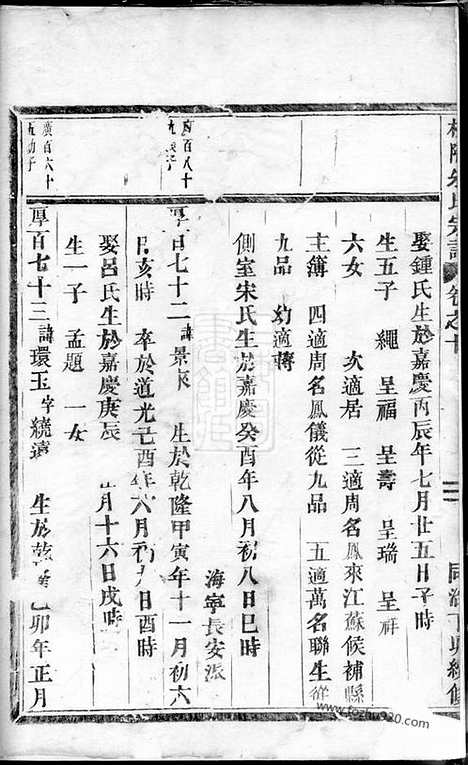 氏宗譜 卷之十
同治丁卯續修
娶鍾氏生於嘉慶丙辰年七月廿五日子時
生五子 繩 呈福 呈壽 呈瑞 呈祥
六女 次適居 三適周名鳳來江蘇候補縣
主簿 四適周名鳳儀從九品 五適萬名聯生從
九品 幼適蔣
側室宋氏生於嘉慶癸酉年八月初八日巳時
海寧長安派
厚百七十二 諱景 生於乾隆甲寅年十一月初六
日亥時 卒於道光己酉年六月初九日酉時
娶呂氏生於嘉慶庚辰 月十六日戌時
生一子 孟題 一女
厚百七十三 諱環玉 字繞遠 生於乾隆乙卯年正月
百八十
廣百六十
九 子
九幼子
www.fozhu920.com